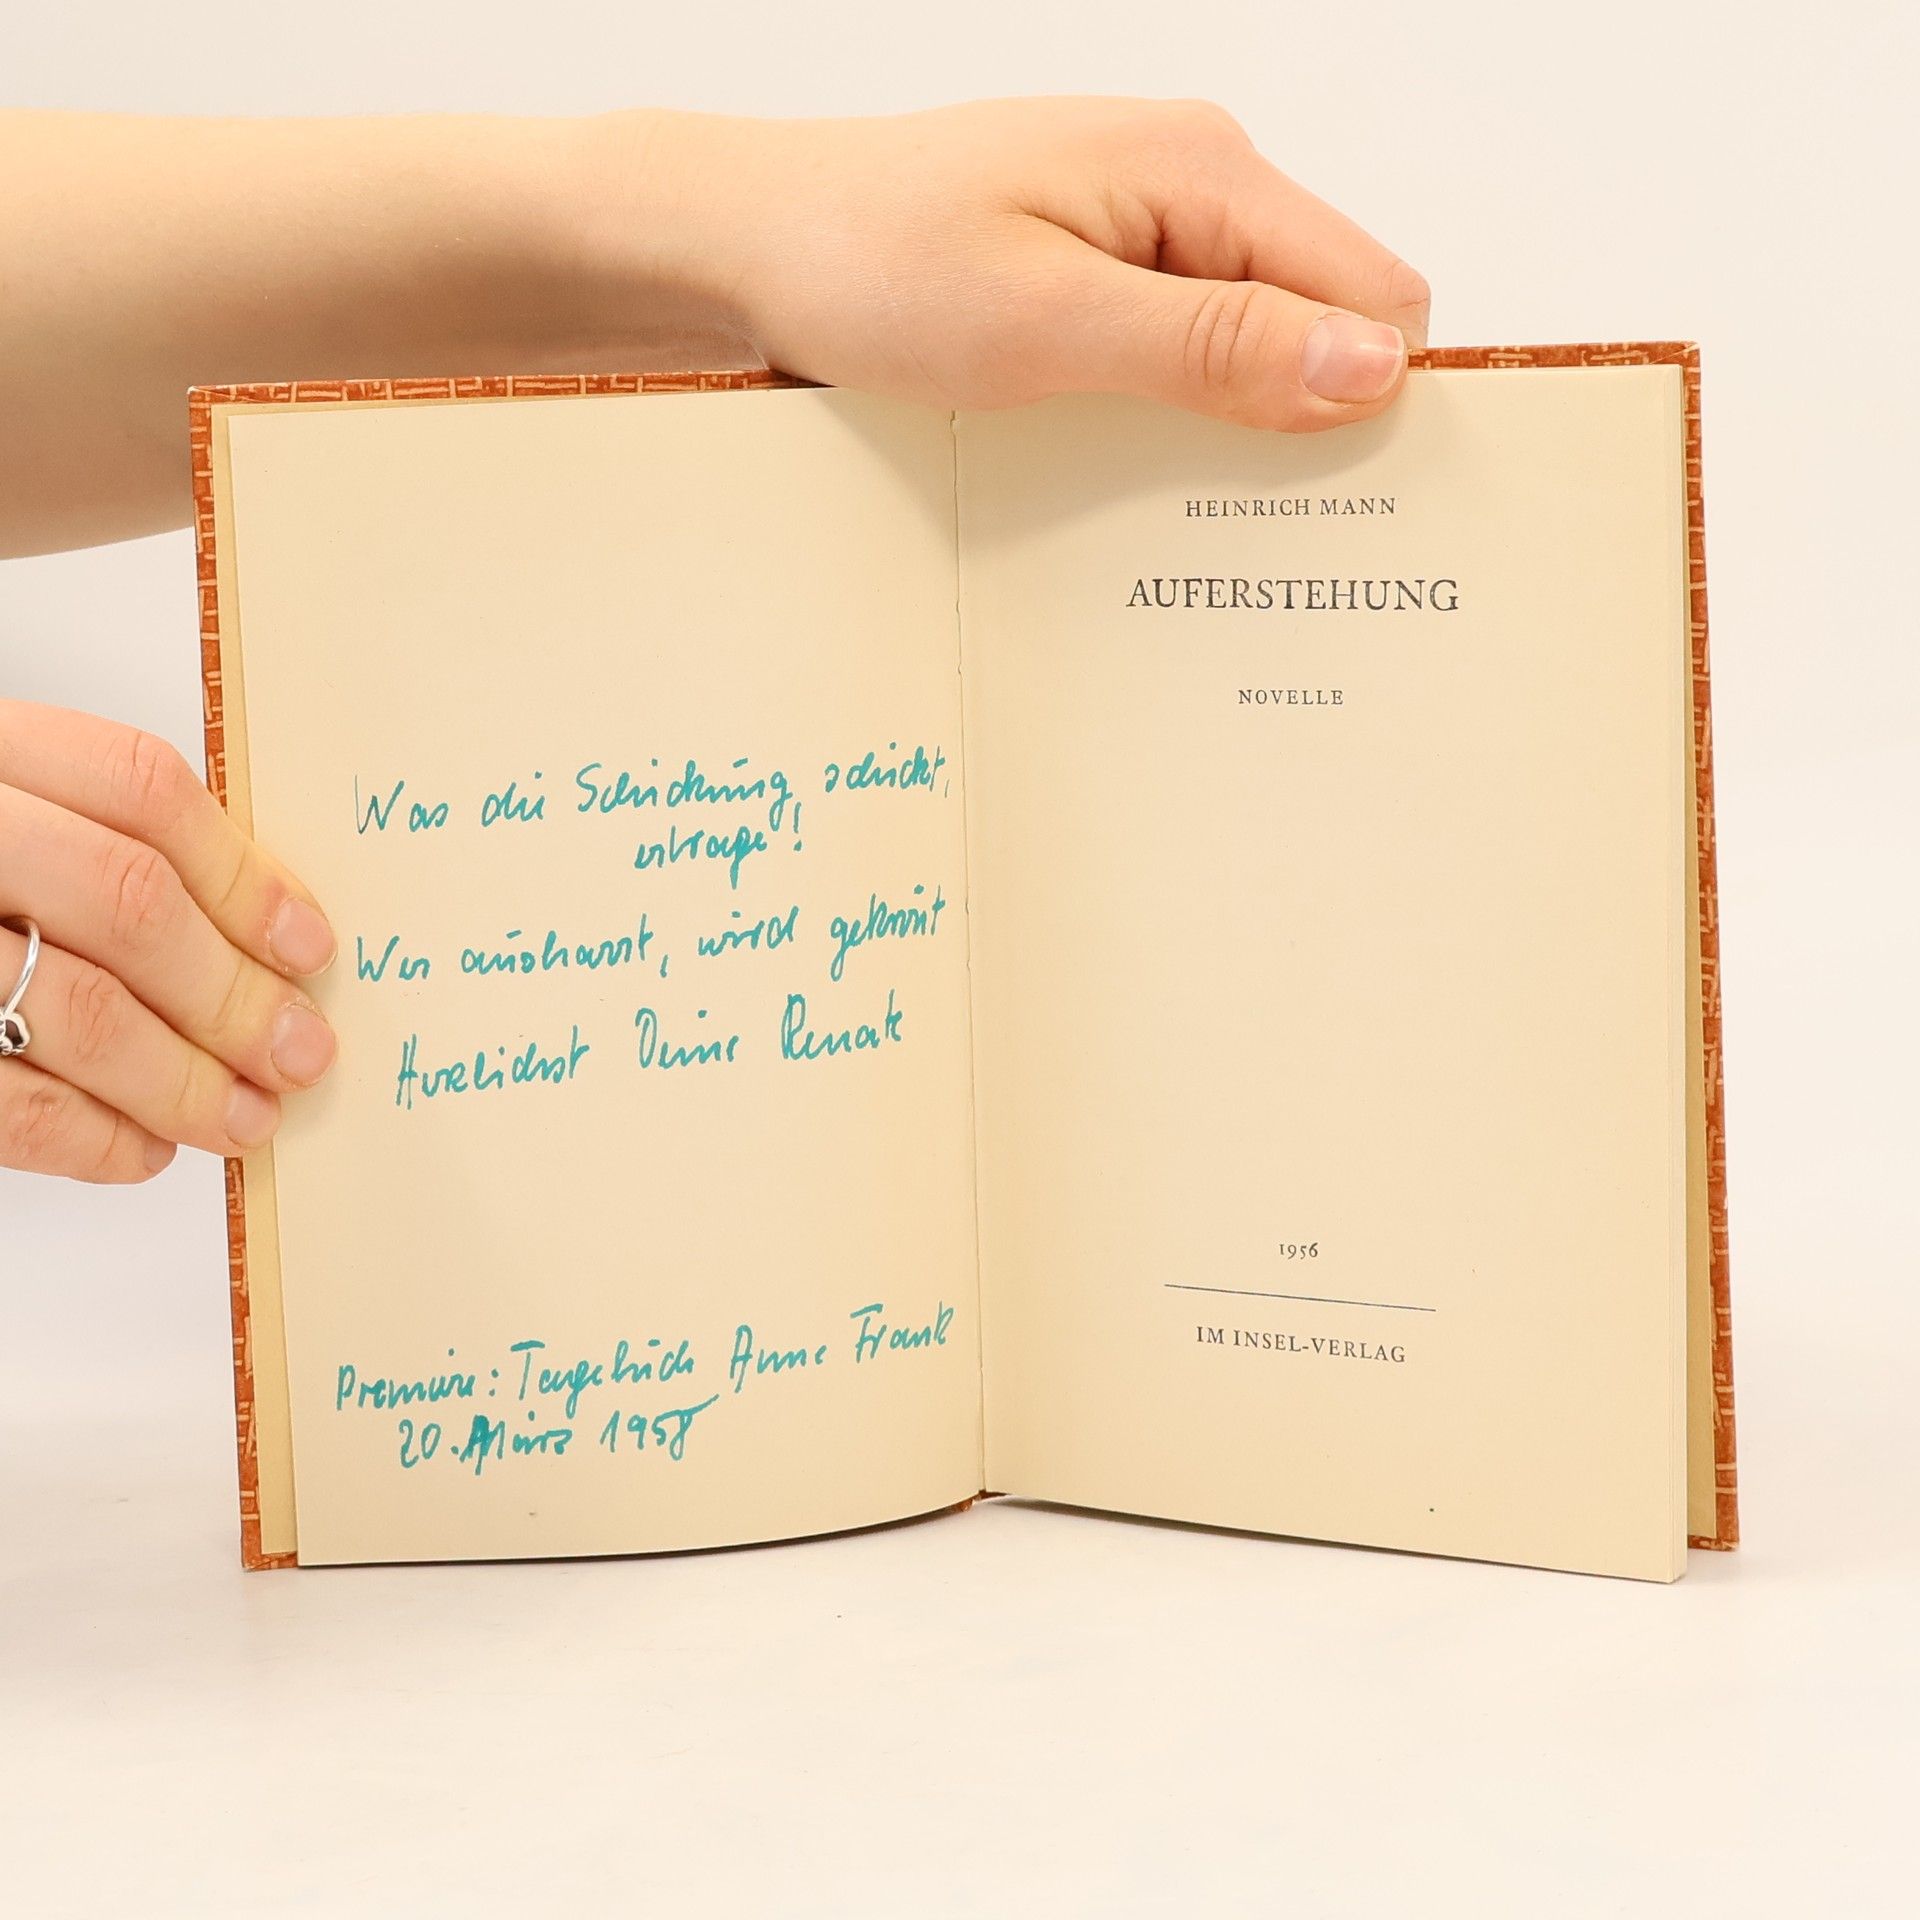 Was die Schickung schickt,
ertrage!
Wer ausharrt, wird gekrönt
Herzlichst Deine Renate
Premiere: Tagebuch Anne Frank
20. März 1958
HEINRICH MANN
AUFERSTEHUNG
NOVELLE
1956
IM INSEL-VERLAG